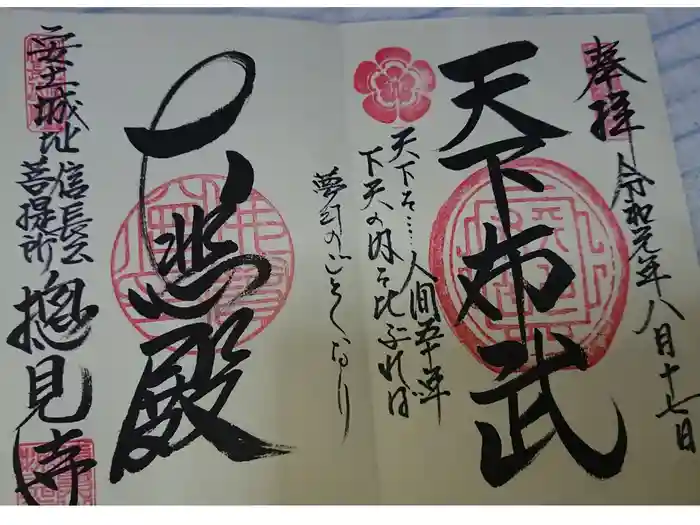 奉拝
令和元年八月十七日
天下布武
天下そ…人間五十年
下天の内を比ぶれば
夢幻のごとくなり
大悲殿
安土城址信長公
菩提所 摠見寺